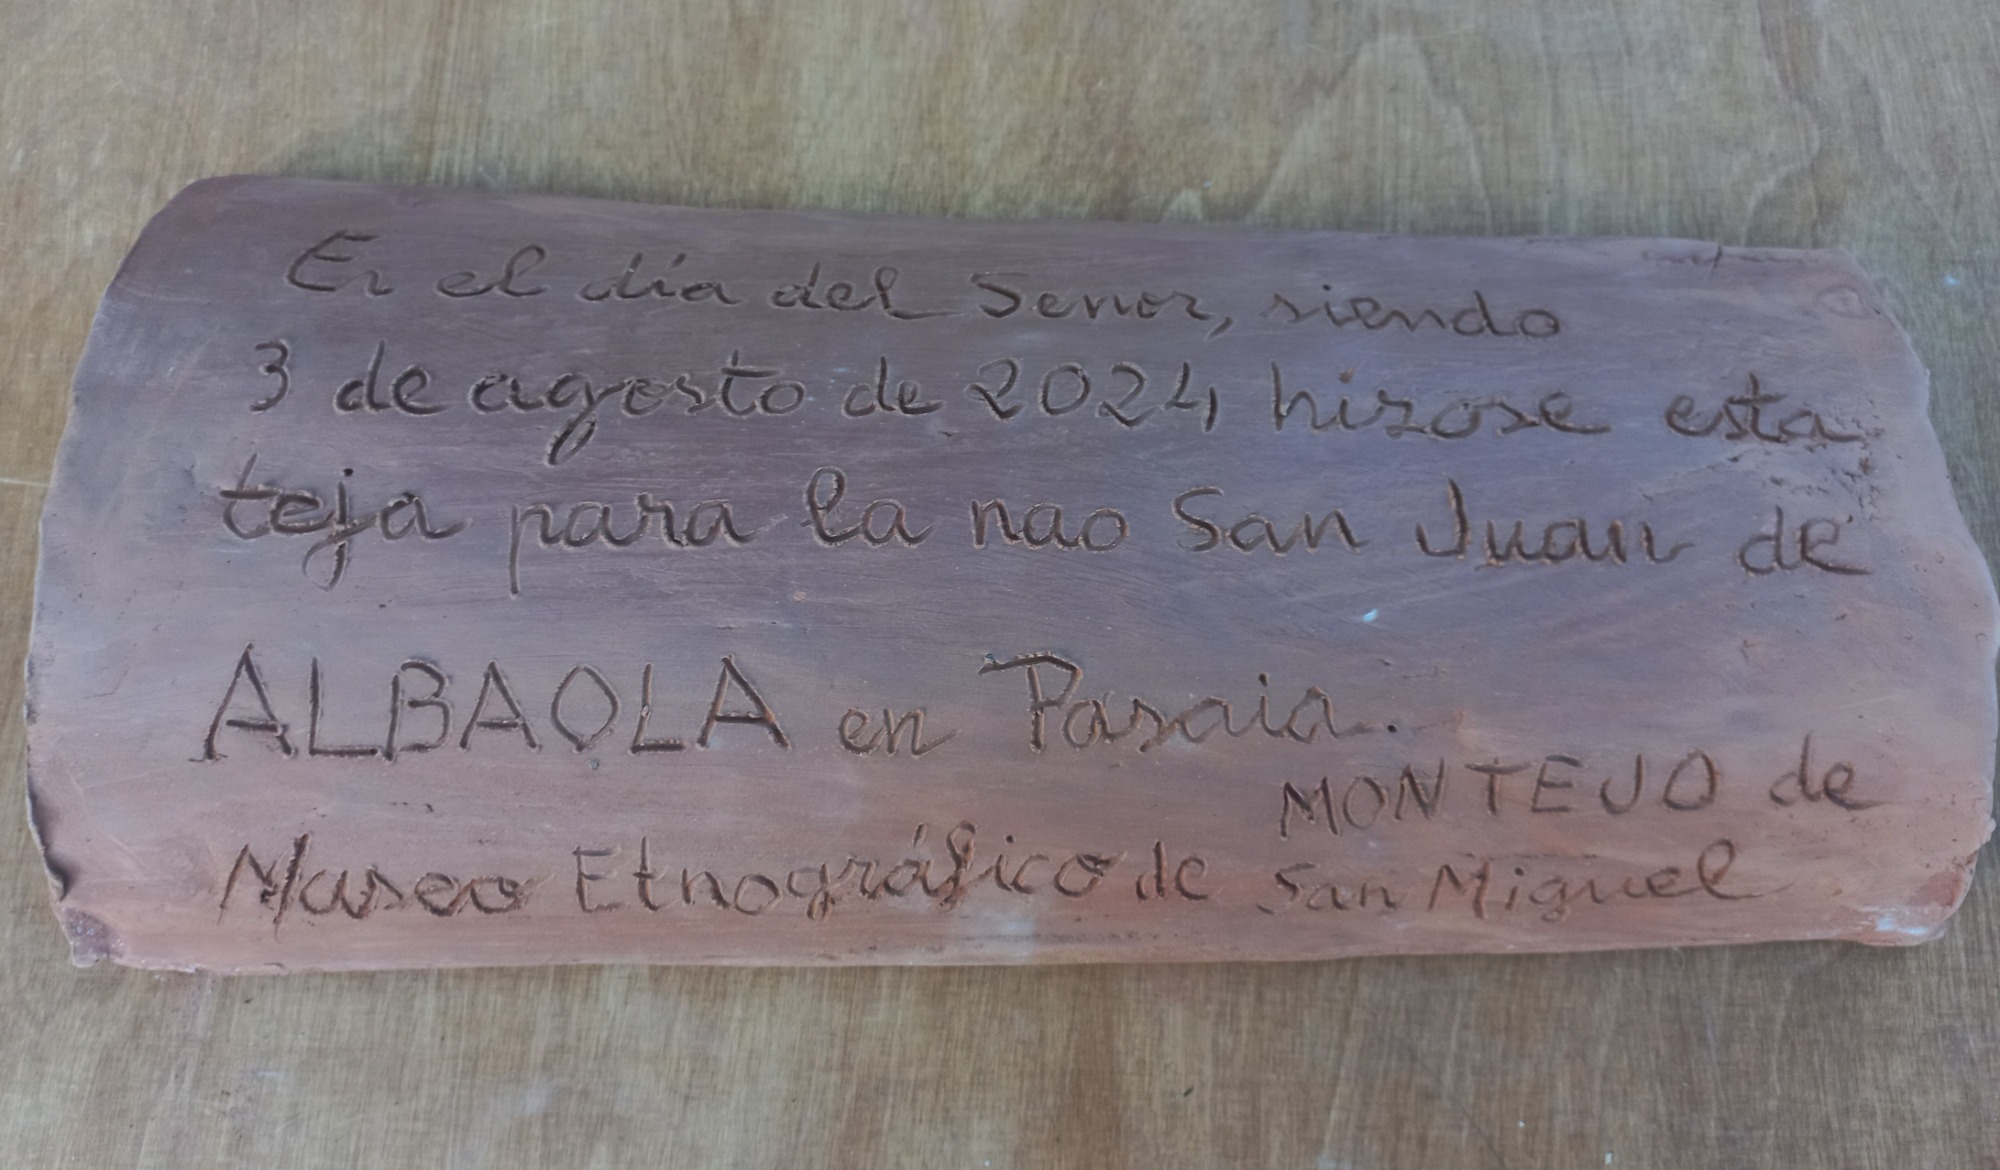 En el día del Senor, siendo
3 de agosto de 2024 hizose esta
teja para la nao San Juan de
ALBAOLA en Pasaia.
Museo Etnográfico de MONTEJO de
San Miguel